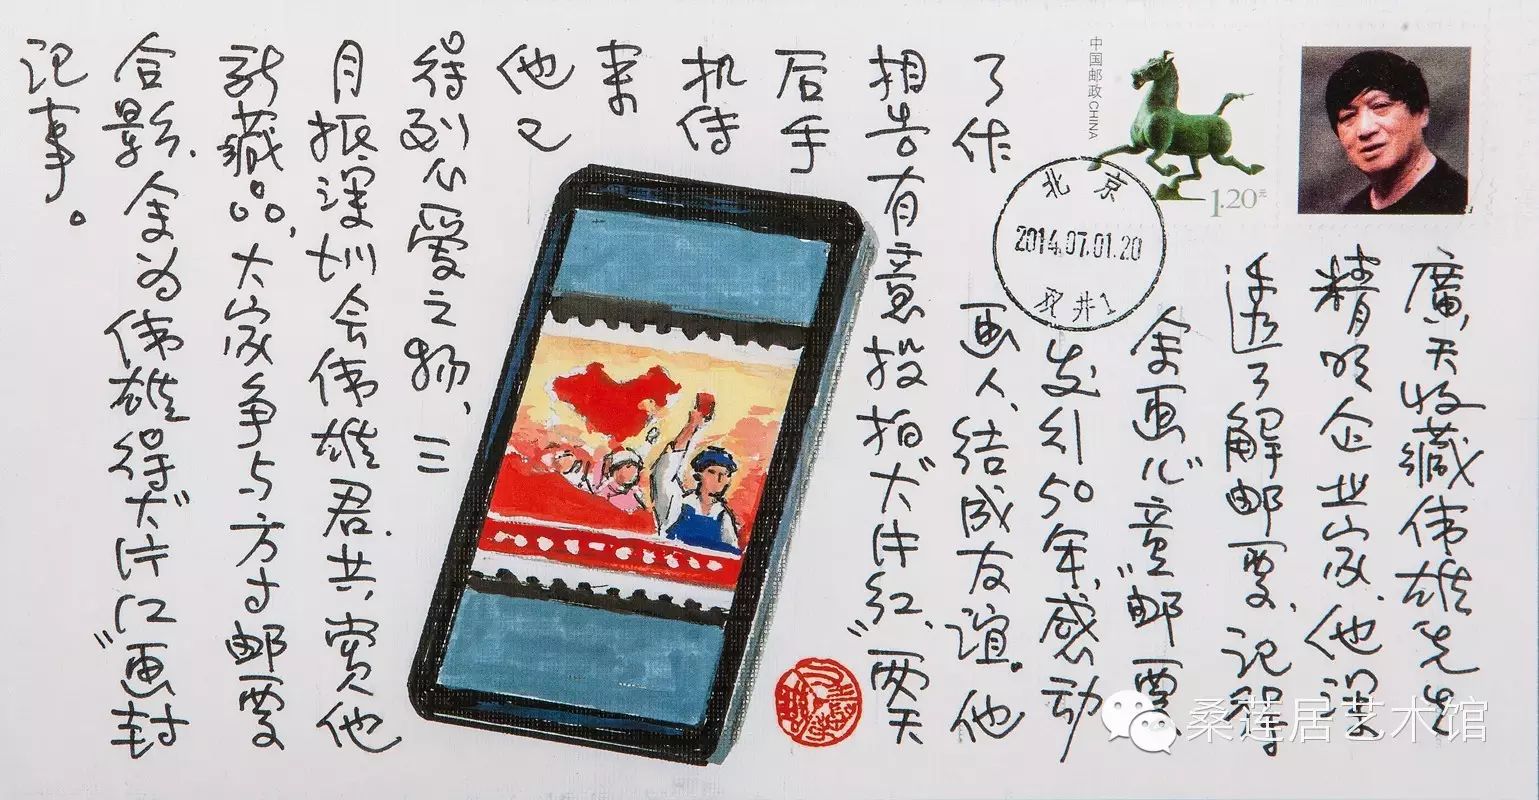 中国邮政CHINA
1.20元
北京
2014.07.01.20
双井1
廣天收藏伟雄先生
精明企业家，他深
透了解邮票，记得
余画“儿童”邮票
发行50年，感动
了作
画人，结成友谊。他
相告有意投拍“大片红”，两天
后手
机传
来
他已
得到心爱之物，三
月抵深圳会伟雄君，共赏他
新藏品，大家争与方寸邮票
合影，余为伟雄得“大片红”画封
记事。
桑莲居艺术馆